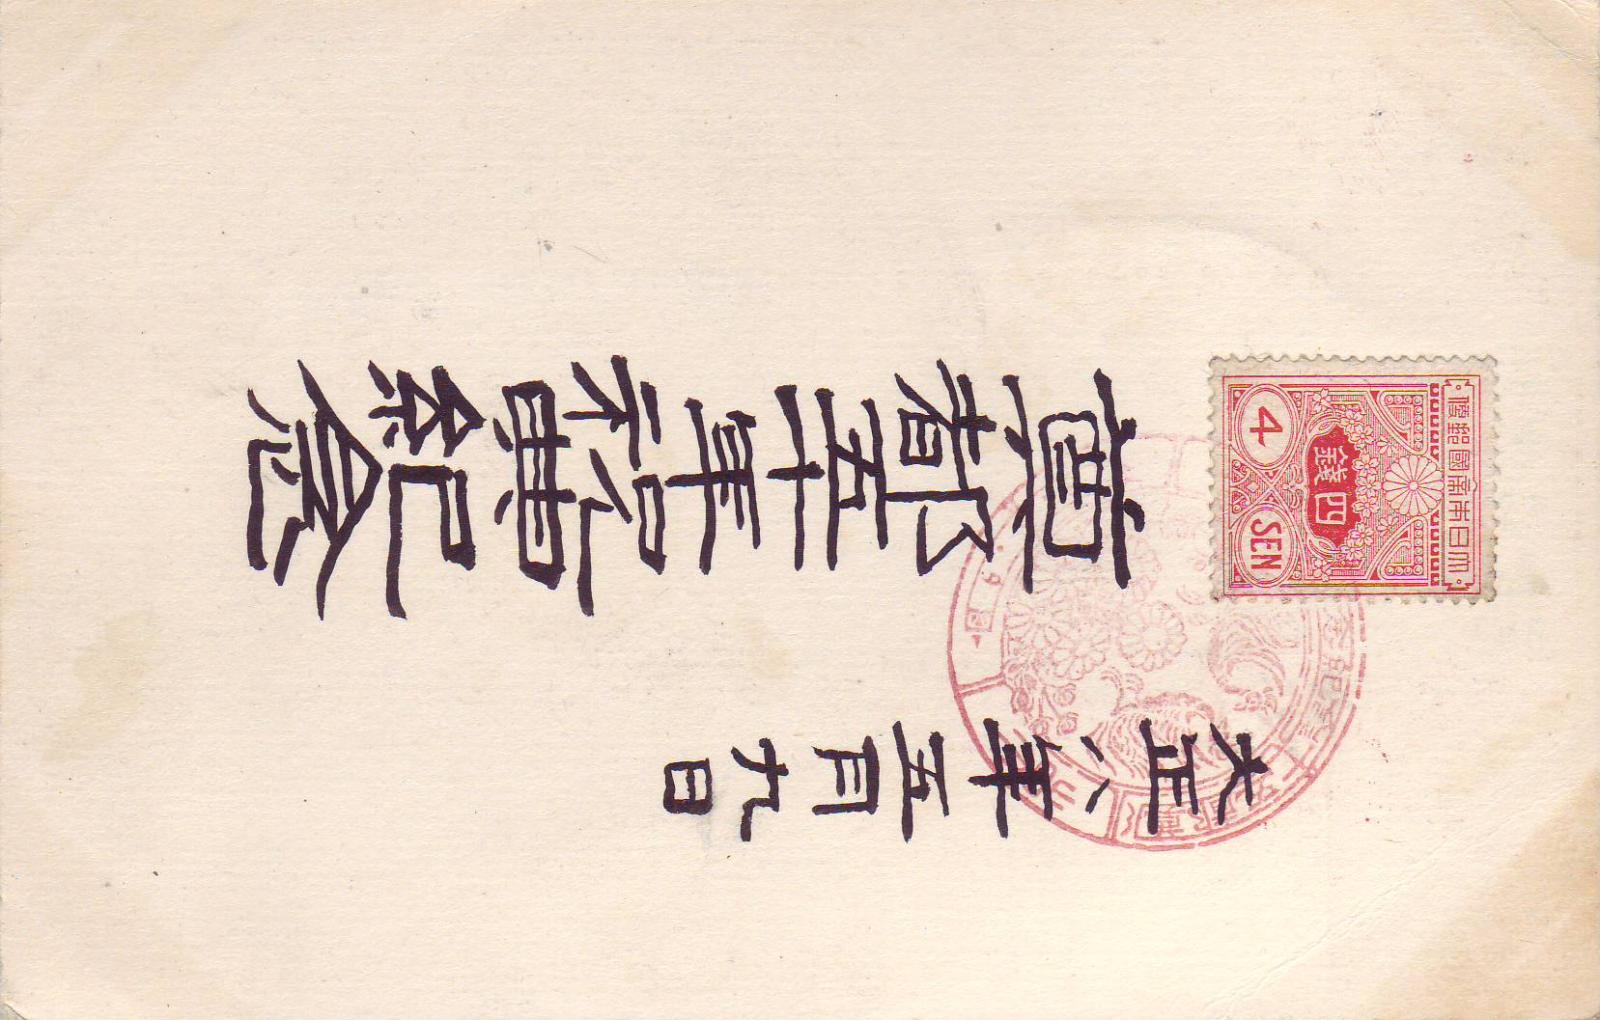 大日本帝國郵便
四錢
4 SEN
大正八年五月九日
奠都五十年祝典紀念